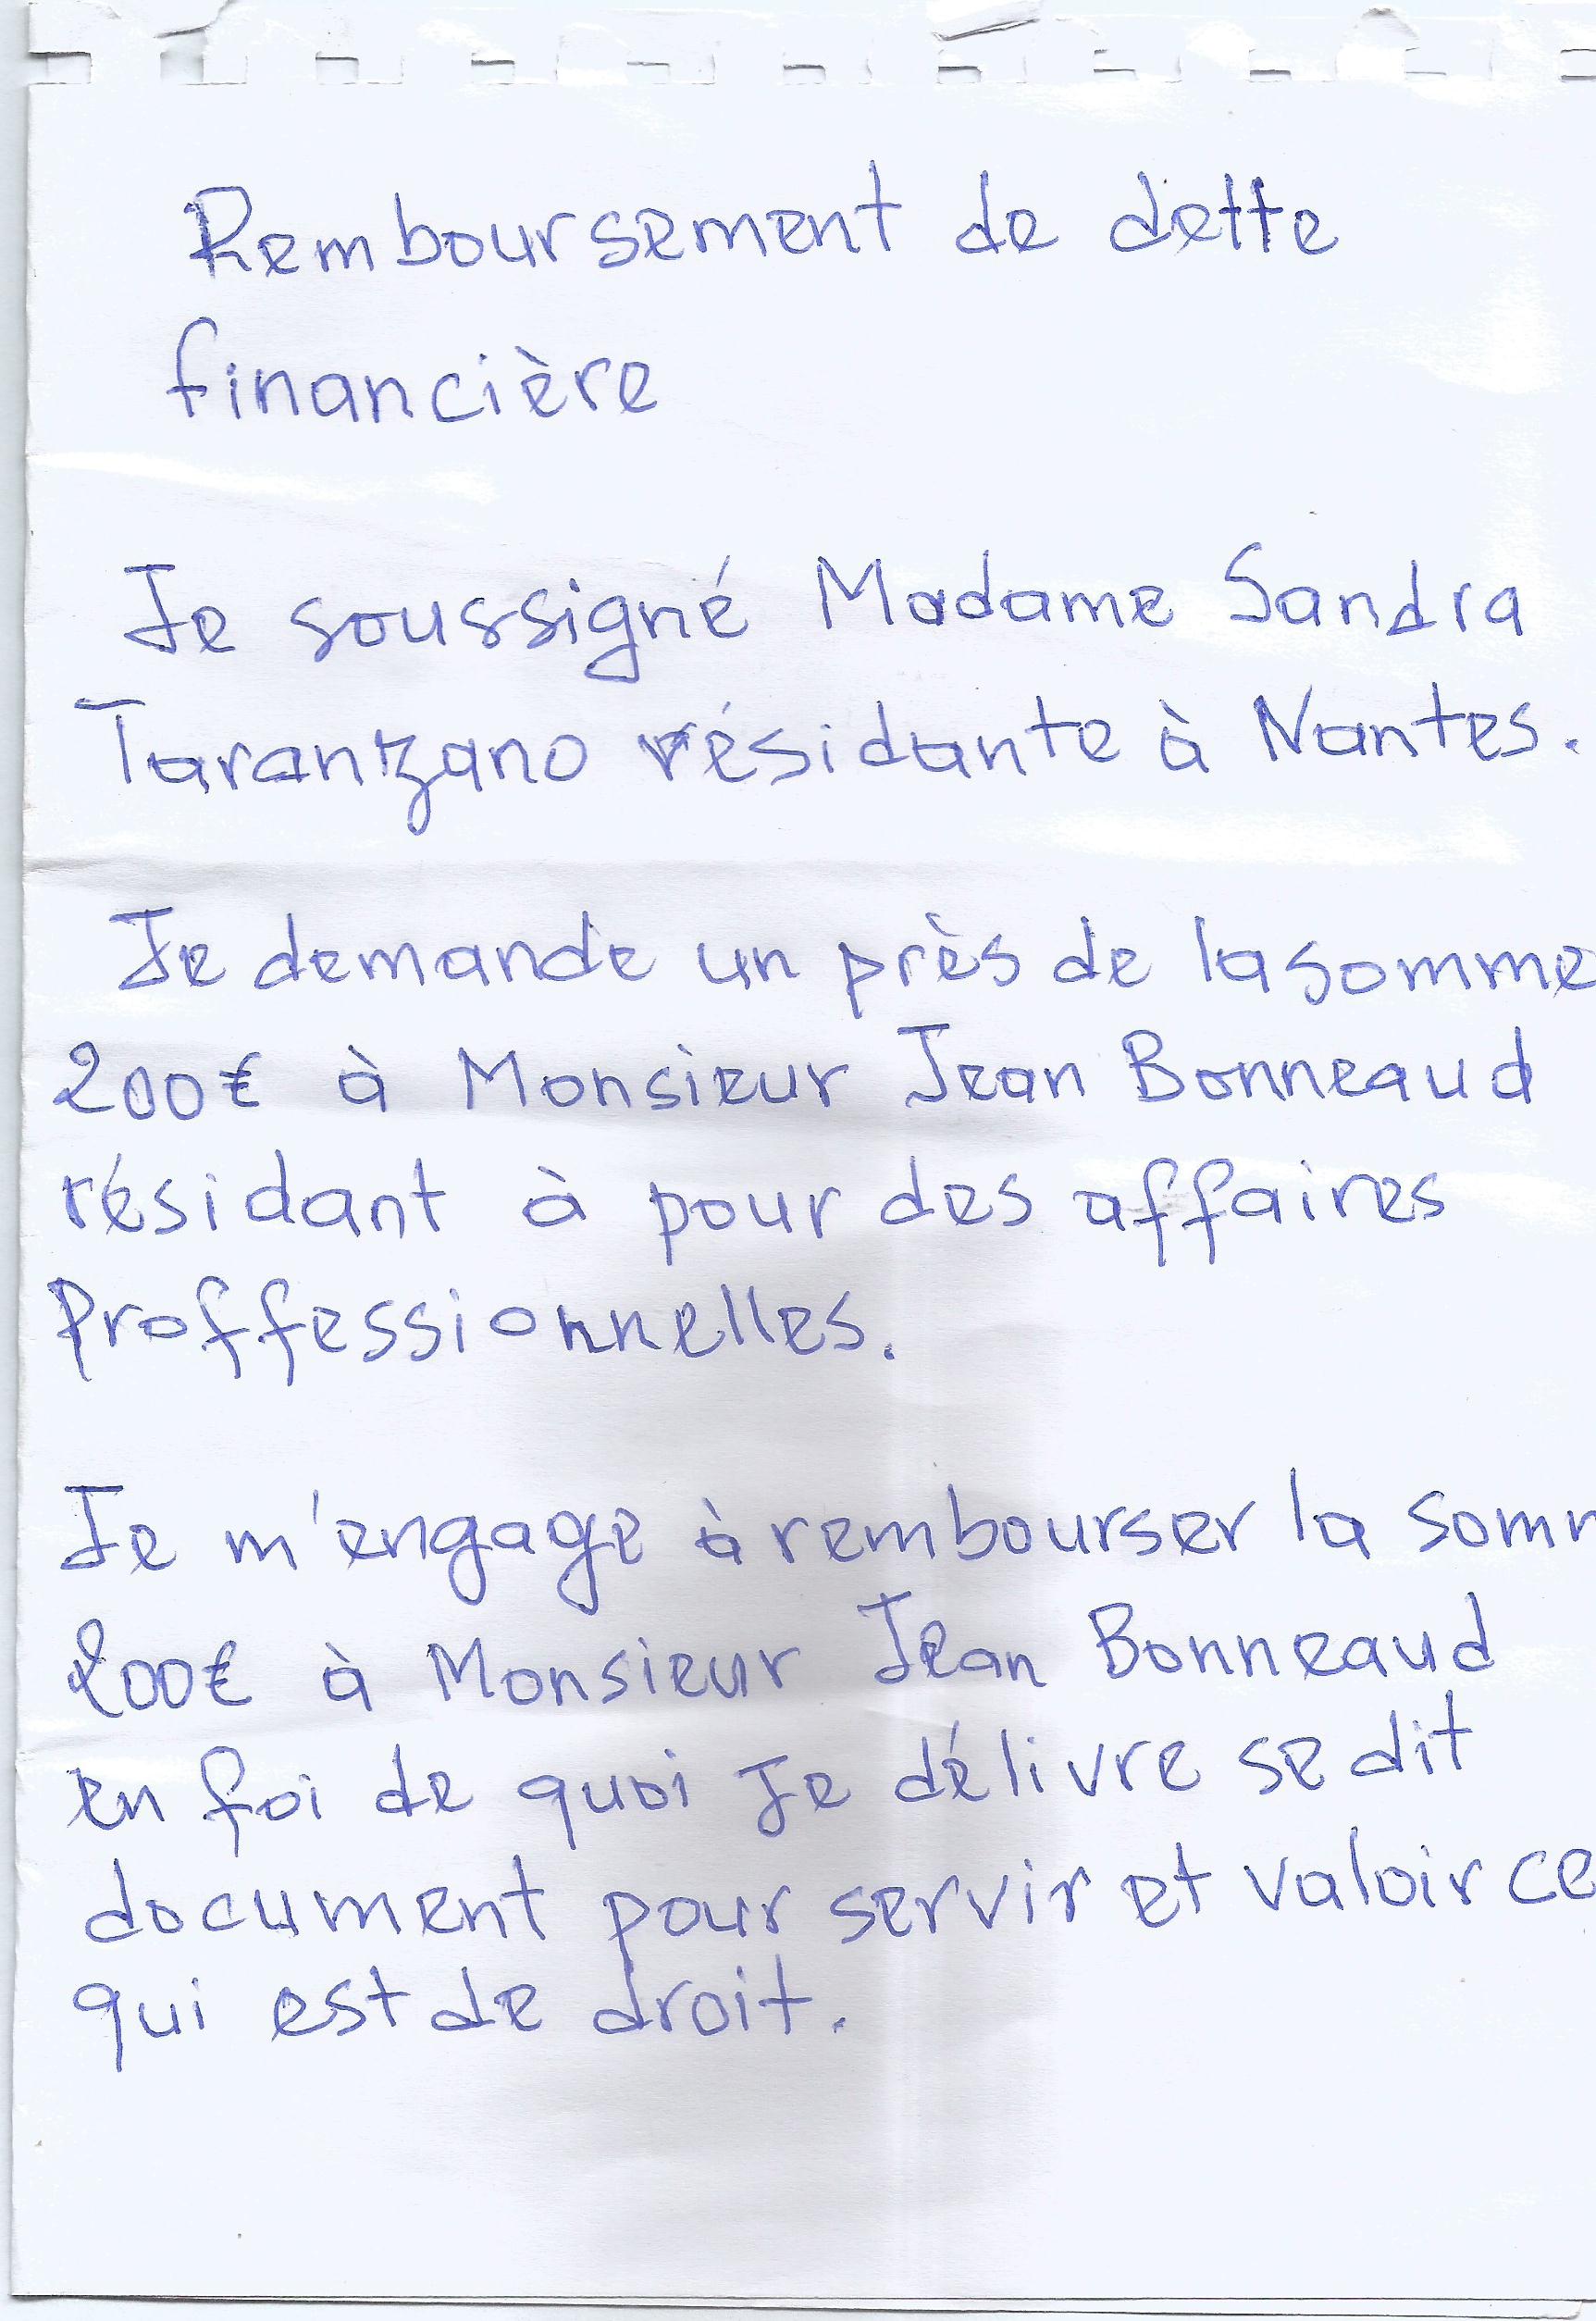 Remboursement de dette
financière
Je soussigné Madame Sandra
Taranzano résidante à Nantes.
Je demande un près de la somme
200€ à Monsieur Jean Bonneaud
résidant à pour des affaires
Proffessionnelles.
Je m'engage à rembourser la somm
200€ à Monsieur Jean Bonneaud
en foi de quoi Je délivre se dit
document pour servir et valoir ce
qui est de droit.